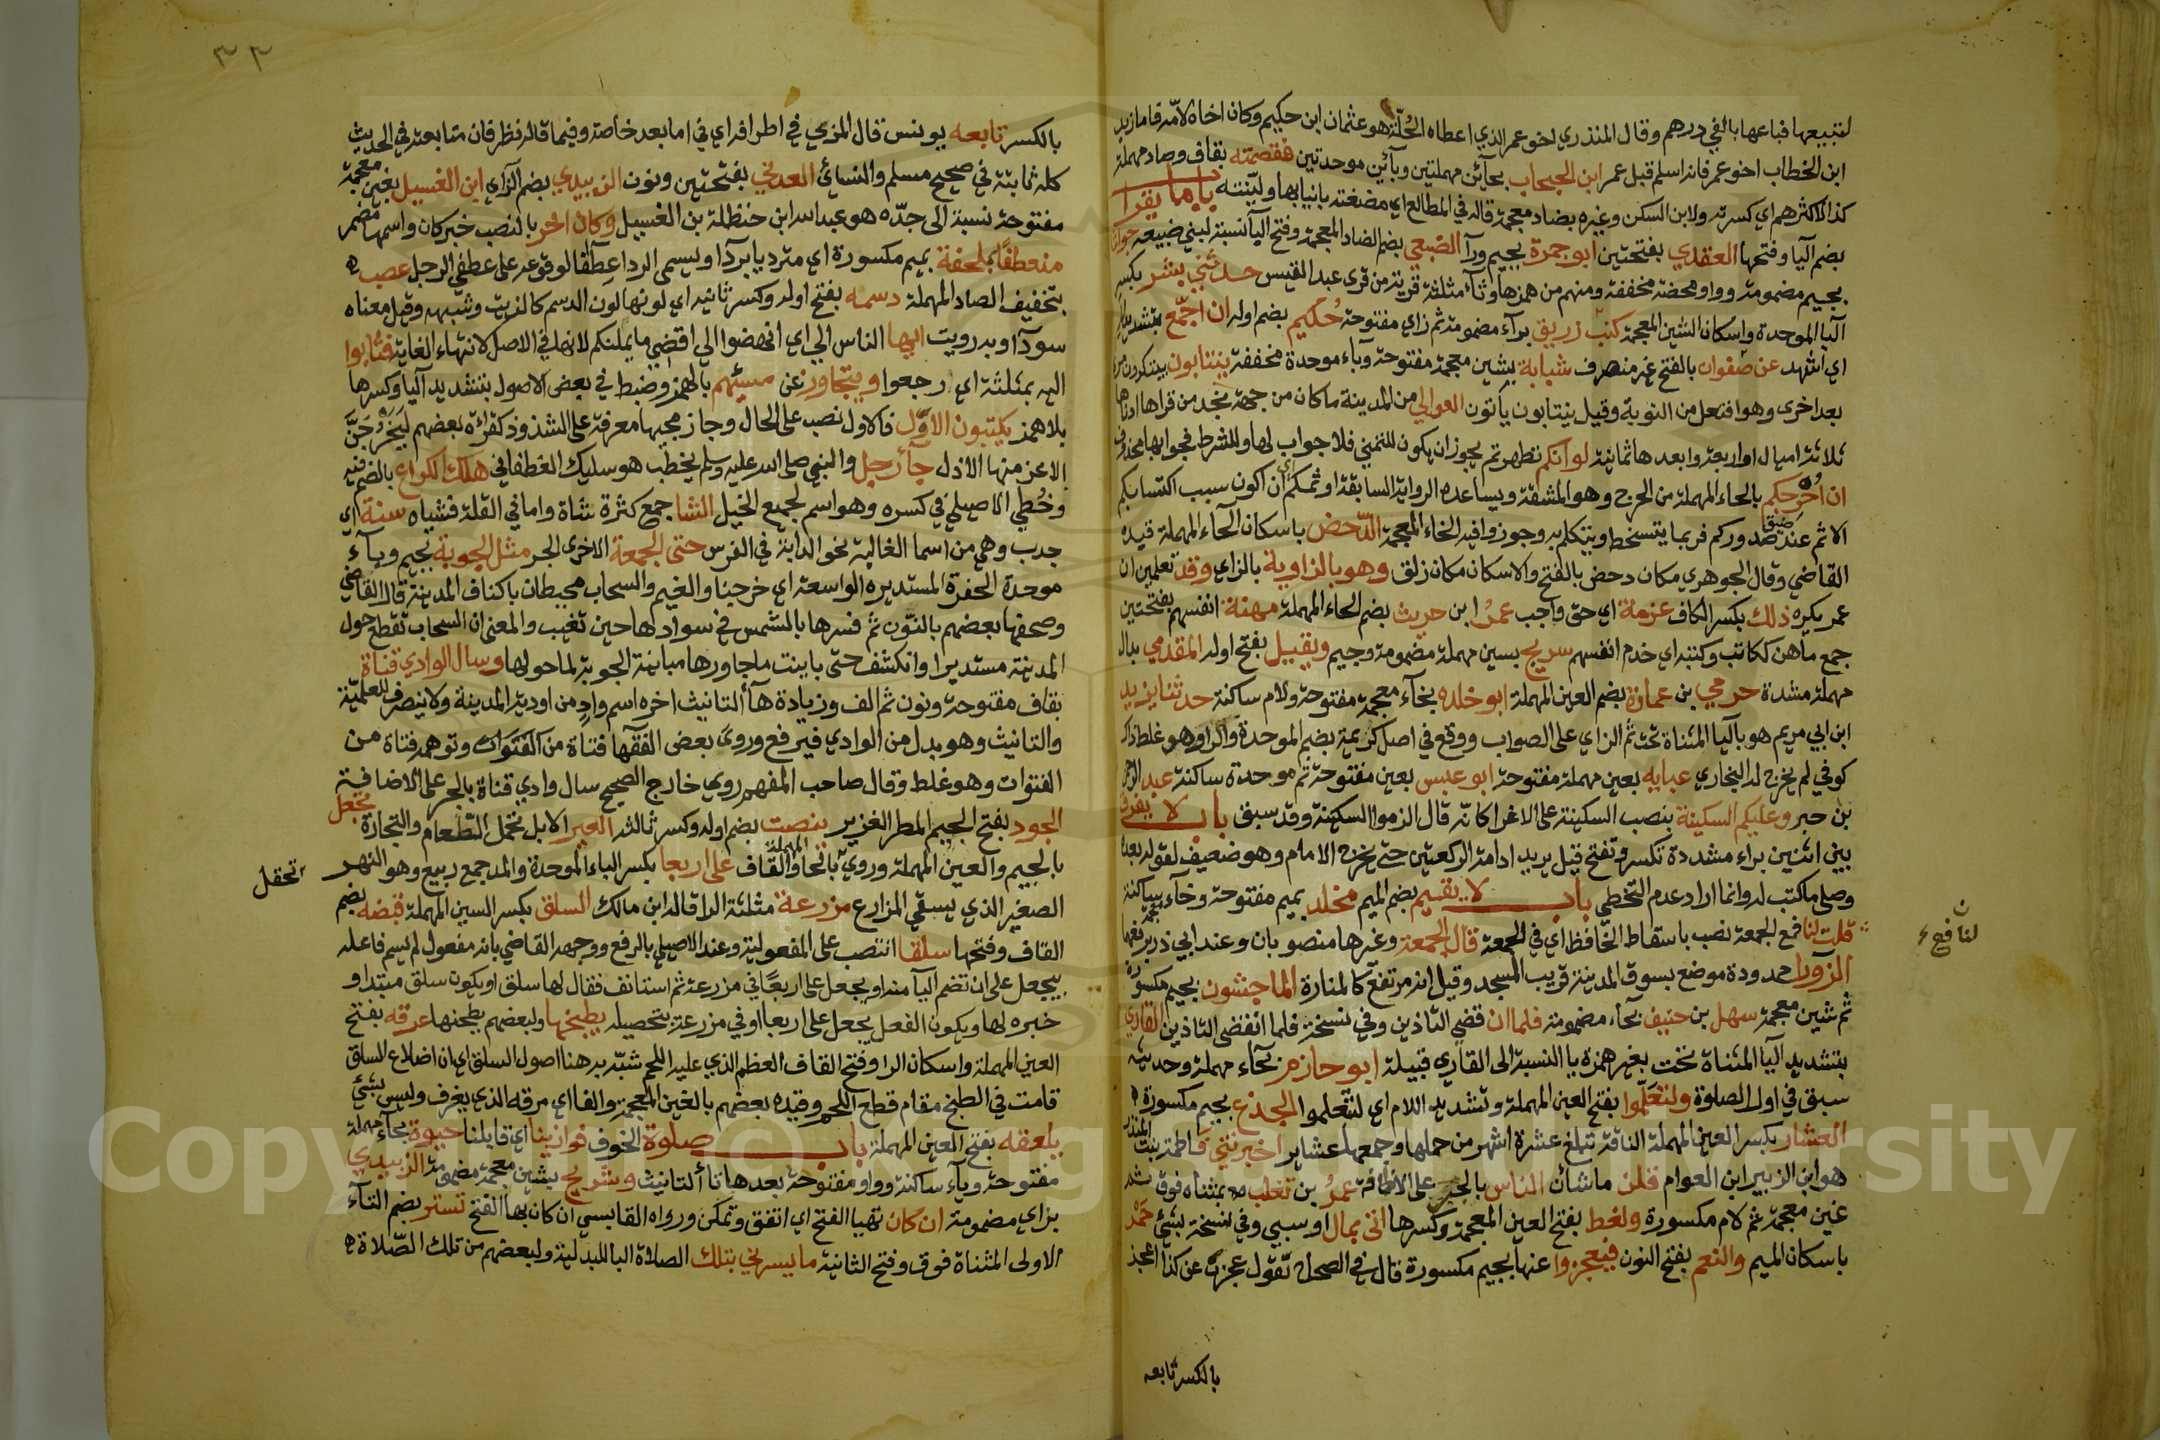 لتبيعها فباعها بالفي درهم وقال المنذري اخو عمر الذي اعطاه الحلة هو عثمان ابن حكيم وكان اخاه لامه قاما زيد
ابن الخطاب اخو عمر فانه اسلم قبل عمر ابن الحبحاب بحآئين مهملتين وبآئين موحدتين فقصمته بقاف وصاد مهملة
كذا لاكثرهم اي كسرته ولابن السكن وغيره بضاد معجمة قاله في المطالع اي مضغته باسنانها ولينته باب ما يقرا
بضم اليا وفتحها العقدي بفتحتين ابو جمرة بجيم ورآ الضبعي بضم الضاد المعجمة وفتح اليآ نسبة لبني ضبيعه جواثا
بجيم مضمومة وواو محضة مخففة ومنهم من همزها وثآء مثلثة قرية من قرى عبد القيس حدثني بشر بكسر
البا الموحدة واسكان الشين المعجمة كتب زريق برآء مضمومة ثم زاي مفتوحة حُكيم بضم اوله ان اجمّع بتشديد الميم
اي اشهد عن صفوان بالفتح غير منصرف شبابة بشين معجمة مفتوحة وبآء موحدة مخففة ينتابون يتكررون مرة
بعد اخرى وهو افتعل من النوبة وقيل ينتابون يأتون العوالي من المدينة ما كان من جهة نجد من قراها ادناها
ثلاثة اميال او اربعة وابعدها ثمانية لو انكم تطهرتم يجوز ان يكون للتمني فلا جواب لها وللشرط فجوابها محذوف
ان اُحرجكم بالحاء المهملة من الحرج وهو المشقة ويساعده الرواية السابقة اوثمكم اي ان اكون سبب اكتسابكم
الاثم عند ضيق صدوركم فربما يتسخط ويتكلم به وجوز وافيه الخاء المعجمة الدّحض باسكان الحآء المهملة قيده
القاضي وقال الجوهري مكان دحض بالفتح والاسكان مكان زلق وهو بالزاوية بالزاي وقد تعلمين ان
عمر يكره ذلك بكسر الكاف عزمة اي حق واجب عمرُ ابن حريث بضم الحاء المهملة مهنة انفسهم بفتحتين
جمع ماهن لكاتب وكتبه اي خدم انفسهم سريج بسين مهملة مضمومة وجيم ويقيل بفتح اوله المقدمي بدال
مهملة مشددة حرمي بن عمارة بضم العين المهملة ابو خلده بخآء معجمة مفتوحة ولام ساكنة حدثنا يزيد
ابن ابي مريم هو باليا المثناة تحت ثم الزاي على الصواب ووقع في اصل كريمة بضم الموحدة والراء وهو غلط ذاك
كوفي لم يخرج له البخاري عبايه بعين مهملة مفتوحة ابو عبس بعين مفتوحة ثم موحدة ساكنة عبد الرحمن
بن جبر وعليكم السكينة بنصب السكينة على الاغراء كانه قال الزموا السكينة وقد سبق باب لا يفرق
بين اثنين براء مشددة تكسر وتفتح قيل يريد ادامة الركعتين حتى يخرج الامام وهو ضعيف لقوله بعده
وصلى ما كتب له وانما اراد عدم التخطي باب لا يقيم بضم الميم مخلد بميم مفتوحة وخآء ساكنة
قلت لنافع الجمعة نصب باسقاط الخافظ اي في الجمعة قال الجمعة وغيرها منصوبان وعند ابي ذر يرفعهما
الزورا ممدودة موضع بسوق المدينة قريب المسجد وقيل انه مرتفع كالمنارة الماجشون بجيم مكسورة
ثم شين معجمة سهل بن حنيف بحآء مضمومة فلما ان قضى التاذين وفي نسخة فلما انقضى التاذين القاري
بتشديد اليا المثناة تحت بغير همزة يا النسبة الى القارة قبيلة ابو حازم بحآء مهملة وحديثه
سبق في اول الصلوة ولتعلّموا بفتح العين المهملة وتشديد اللام اي لتتعلموا الجذع بجيم مكسورة
العشار بكسر العين المهملة الناقة تبلغ عشرة اشهر من حملها وجمعها عشاير اخبرتني فاطمة بنت المنذر
هو ابن الزبير ابن العوام قلت ما شأن الناس بالجر على الاضافة عمرُ بن تغلب بمثناه فوق
غين معجمة ثم لام مكسورة ولغط بفتح العين المعجمة وكسرها اتى بمال او سبي وفي نسخة بشيء حُمر
باسكان الميم والنعم بفتح النون فيعجزوا عنها بجيم مكسورة قال في الصحاح تقول عجزت عن كذا اعجز
بالكسر تابعه
ن
لنافع
٣٣
بالكسر تابعه يونس قال المزي في اطرافه اي في اما بعد خاصة وفيما قاله نظر فان متابعته في الحديث
كله ثابتة في صحيح مسلم والنسائ العدني بفتحتين ونون الزبيدي بضم الزاي ابن الغسيل بغين معجمة
مفتوحة نسبة الى جدّه هو عبد الله ابن حنظلة بن الغسيل وكان اخر بالنصب خبر كان واسمها مضمر
منعطفًا بملحفة بميم مكسورة اي مترديا بردآ ويسمى الردا عِطافًا لوقوعه على عطفي الرجل عصب
بتخفيف الصاد المهملة دسمه بفتح اوله وكسر ثانيه اي لونها لون الدسم كالزيت وشبهه وقيل معناه
سودآ وبه رويت ايها الناس الي اي انهضوا الي اقضي ما يملنكم لانها في الاصل لانتهاء الغاية فثابوا
اليه بمثلثة اي رجعوا ويتجاوز عن مسيئهم بالهمز وضبط في بعض الاصول بتشديد اليا وكسرها
بلا همز يكتبون الاوّل فالاول نصب على الحال وجاز مجيها معرفة على الشذوذ كقراءة بعضهم ليَخرُجَنّ
الاعز منها الاذل جآ رجل والنبي صلى الله عليه وسلم يخطب هو سليك الغطفاني هلك الكراع بالضم فيه
وخُطي الاصيلي في كسره وهو اسم لجميع الخيل الشا جمع كثرة شاة واما في القلة فشياه سنة اي
جدب وهي من اسما الغالبة نحو الدابة في الفرس حتى الجمعة الاخرى الجر مثل الجوبة بجيم وبآء
موحدة الحفرة المستديرة الواسعة اي خرجنا والغيم والسحاب محيطان باكناف المدينة قال القاضي
وصحفها بعضهم بالنون ثم فسرها بالشمس في سوادها حين تغيب والمعنى ان السحاب تقطع حول
المدينة مستديرا وانكشف حتى باينت ما جاورها مباينة الجوبة لما حولها وسال الوادي قناة
بقاف مفتوحة ونون ثم الف وزيادة هآ التانيث اخره اسم وادٍ من اودية المدينة ولا ينصرف للعلمية
والتانيث وهو بدل من الوادي فيرفع وروى بعض الفقها قناة من القنوات وتوهمه قناة من
القنوات وهو غلط وقال صاحب المفهم روي خارج الصحيح سال وادي قناة بالجر على الاضافة
الجود بفتح الجيم المطر الغزير ينصت بضم اوله وكسر ثالثه العير الابل تحمل الطّعام والتجارة تجعل
بالجيم والعين المهملة وروي بالحا المهملة والقاف على اربعا بكسر الباء الموحدة والمد جمع ربيع وهو النهر
الصغير الذي يسقي المزارع مزرعة مثلثة الرا قاله ابن مالك السلق بكسر السين المهملة قبضه بضم
القاف وفتحها سلقا انتصب على المفعولية وعند الاصيلي بالرفع ووجهه القاضي بانه مفعول لم يسم فاعله
بيجعل على ان تضم اليآ منه او يجعل على اربعاً في مزرعة ثم استانف فقال لها سلق او يكون سلق مبتدا و
خبره لها ويكون الفعل يجعل على اربعا او في مزرعة بتحصيله يطبخها ولبعضهم يطحنها عرقه بفتح
العين المهملة واسكان الرا وفتح القاف العظم الذي عليه اللحم شبّه به هنا اصول السلق اي ان اضلاع السلق
قامت في الطبخ مقام قطع اللحم وقيده بعضهم بالغين المعجمة والفا اي مرقه الذي يغرف وليس بشيء
يلعقه بفتح العين المهملة باب صلوة الخوف فوازينا اي قابلنا حيوة بحآء مهملة
مفتوحة ويآء ساكنة وواو مفتوحة بعدها تا التانيث وشريح بشين معجمة مضمومة الزبيدي
بزاي مضمومة ان كان تهيا الفتح اي اتفق وتمكن ورواه القابسي ان كان بها الفتح تستر بضم التآء
الاولى المثناة فوق وفتح الثانية ما يسرني بتلك الصلاة البا للبدلية ولبعضهم من تلك الصّلاة
تحقل